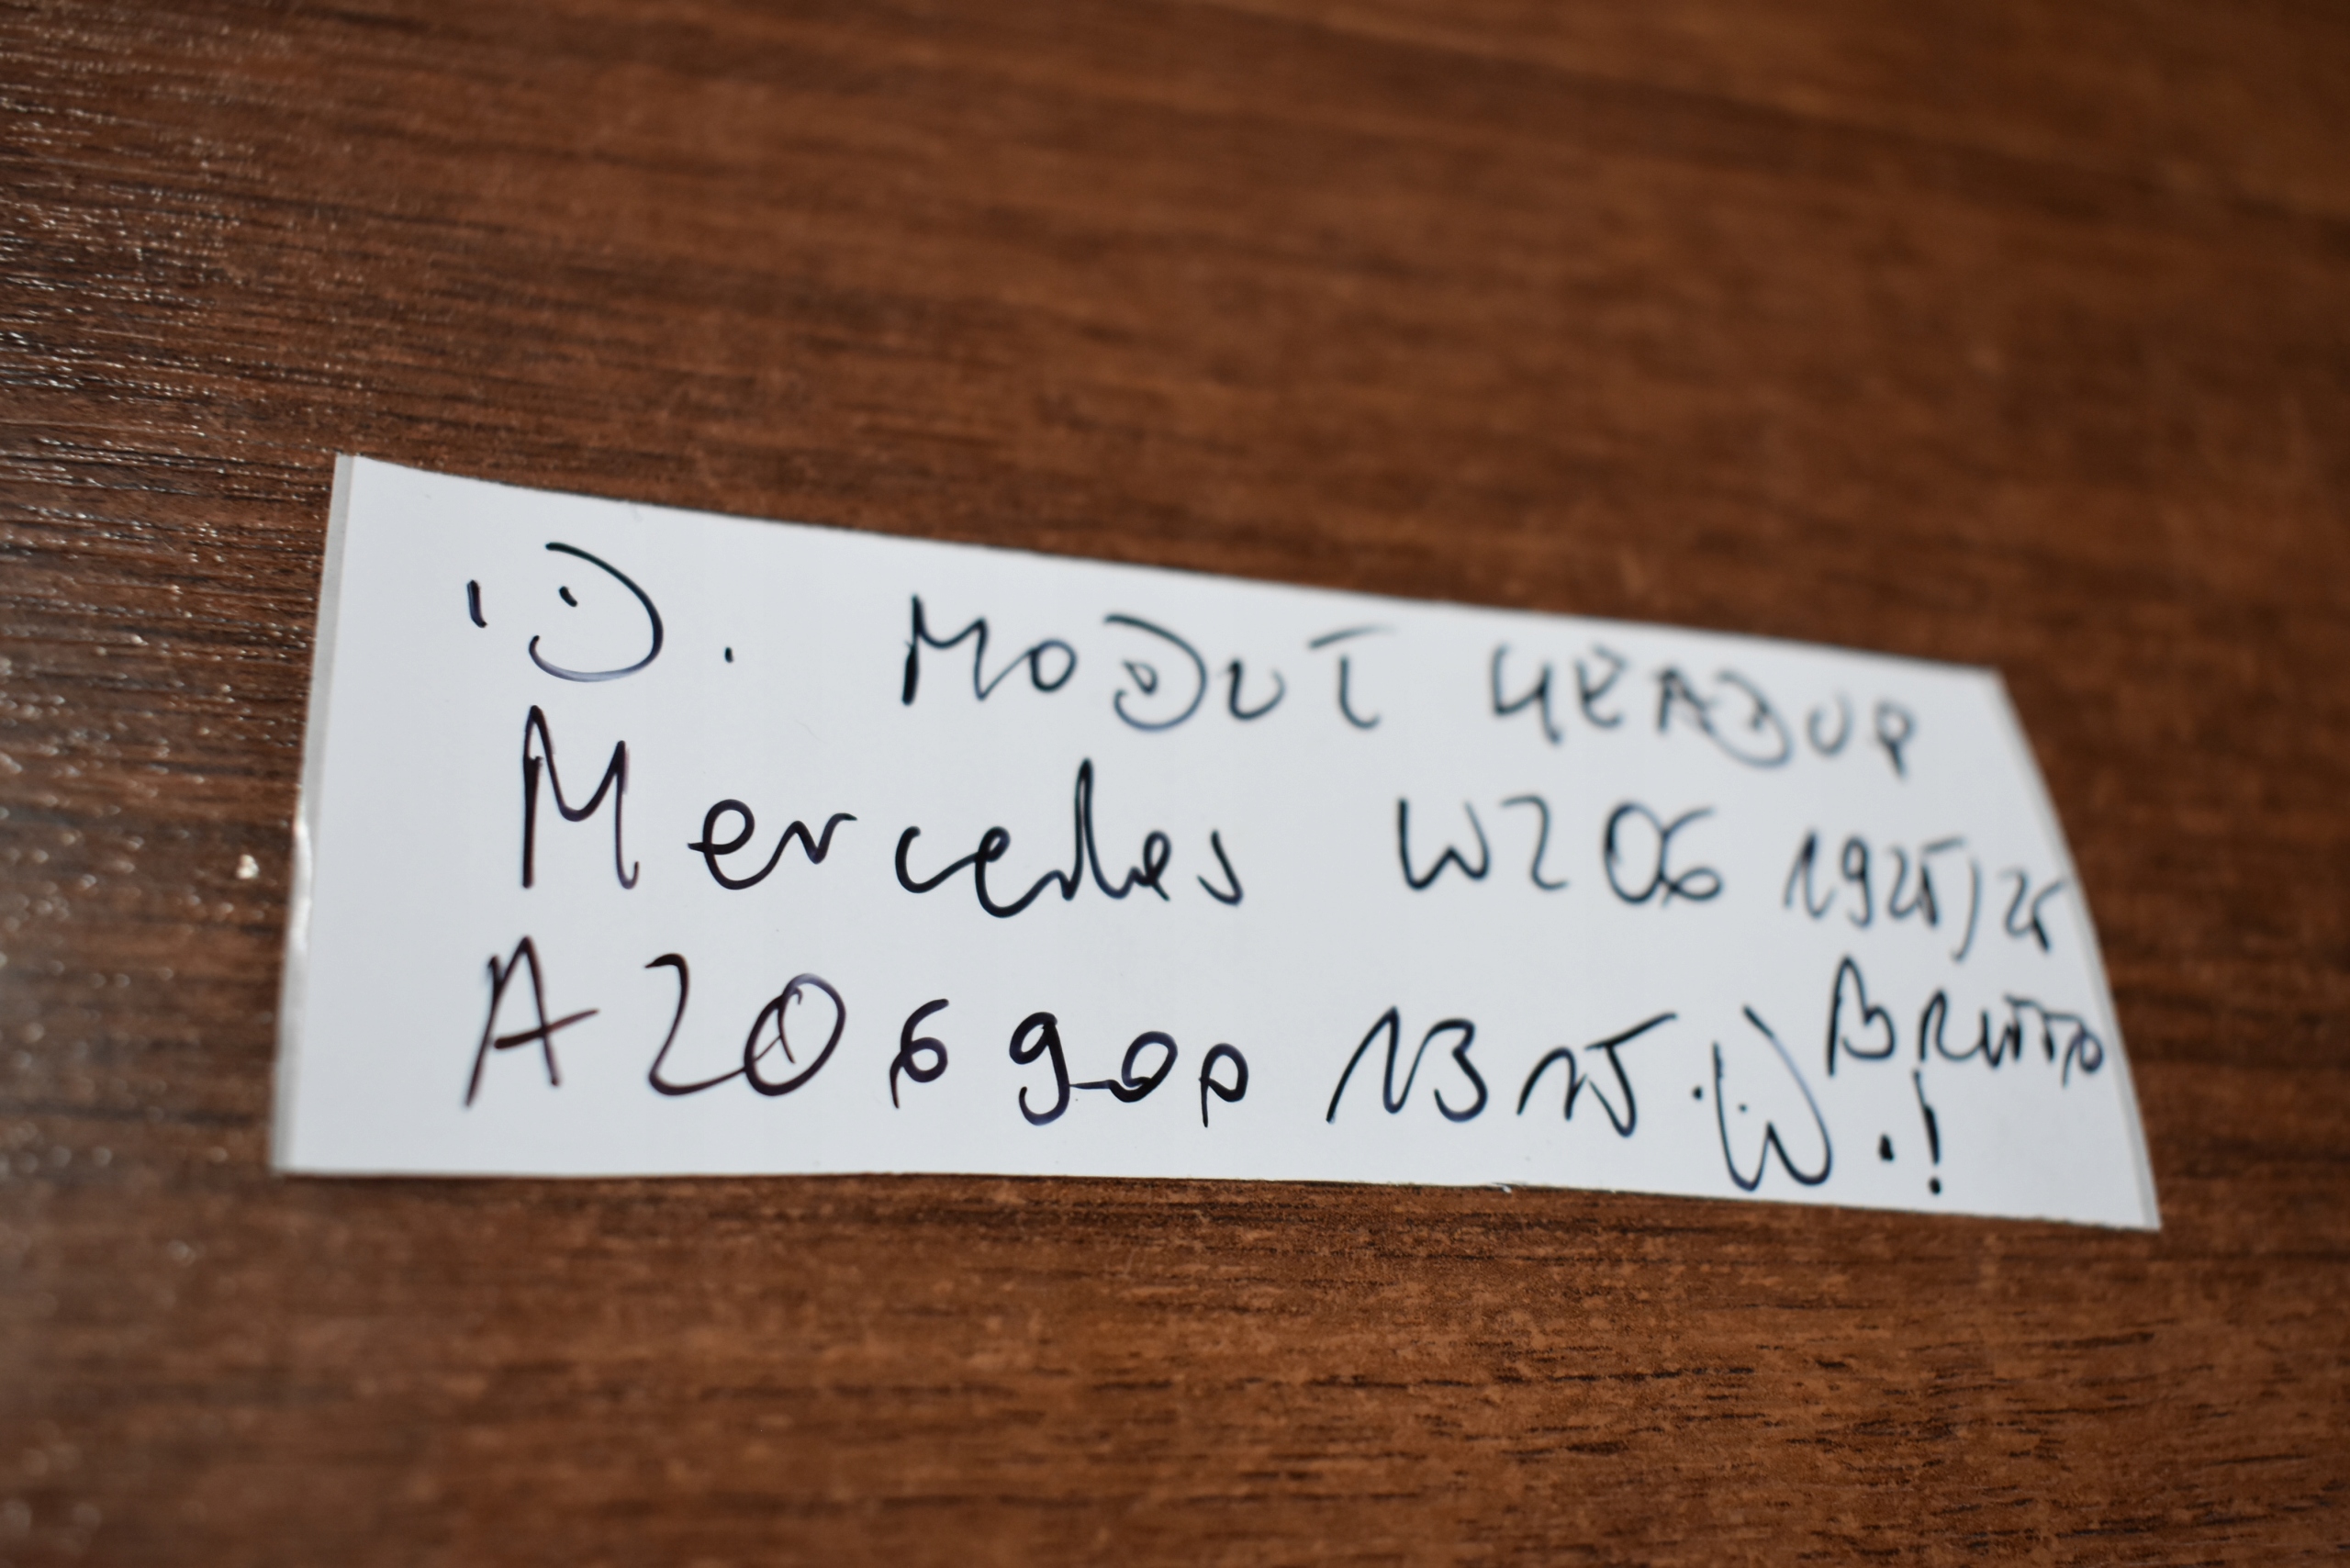 D. MODUŁ HEADUP
Mercedes W206 1925/25
A206 900 13 15 W.! BRUTTO